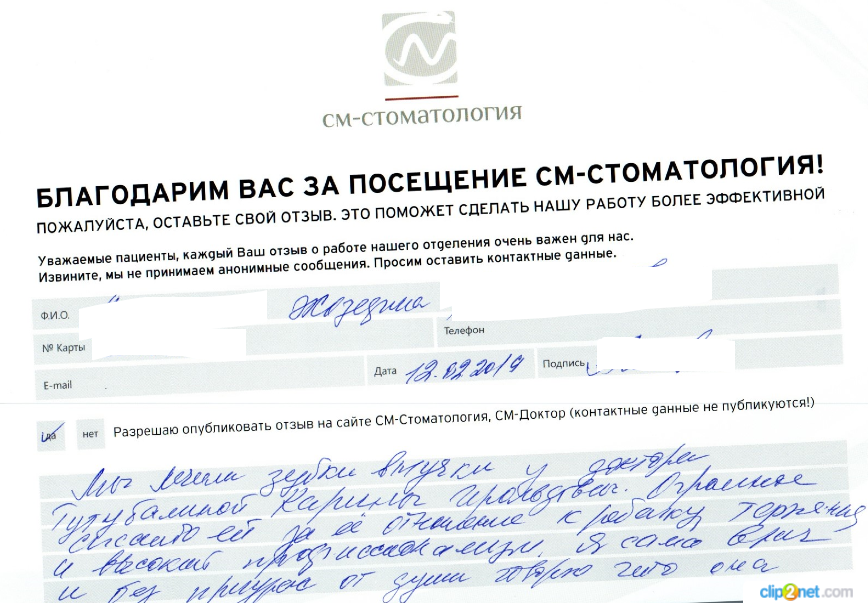 см-стоматология
БЛАГОДАРИМ ВАС ЗА ПОСЕЩЕНИЕ СМ-СТОМАТОЛОГИЯ!
ПОЖАЛУЙСТА, ОСТАВЬТЕ СВОЙ ОТЗЫВ. ЭТО ПОМОЖЕТ СДЕЛАТЬ НАШУ РАБОТУ БОЛЕЕ ЭФФЕКТИВНОЙ
Уважаемые пациенты, каждый Ваш отзыв о работе нашего отделения очень важен для нас.
Извините, мы не принимаем анонимные сообщения. Просим оставить контактные данные.
Ф.И.О.
№ Карты Телефон
E-mail Дата 12.02.2019 Подпись
да нет Разрешаю опубликовать отзыв на сайте СМ-Стоматология, СМ-Доктор (контактные данные не публикуются!)
Мы лечили зубки внучки у доктора
Тутубалиной Карины Огромное
спасибо ей за её отношение к ребенку, терпение
и высокий профессионализм. Я сама врач
и без прикрас от души говорю что она
clip2net.com